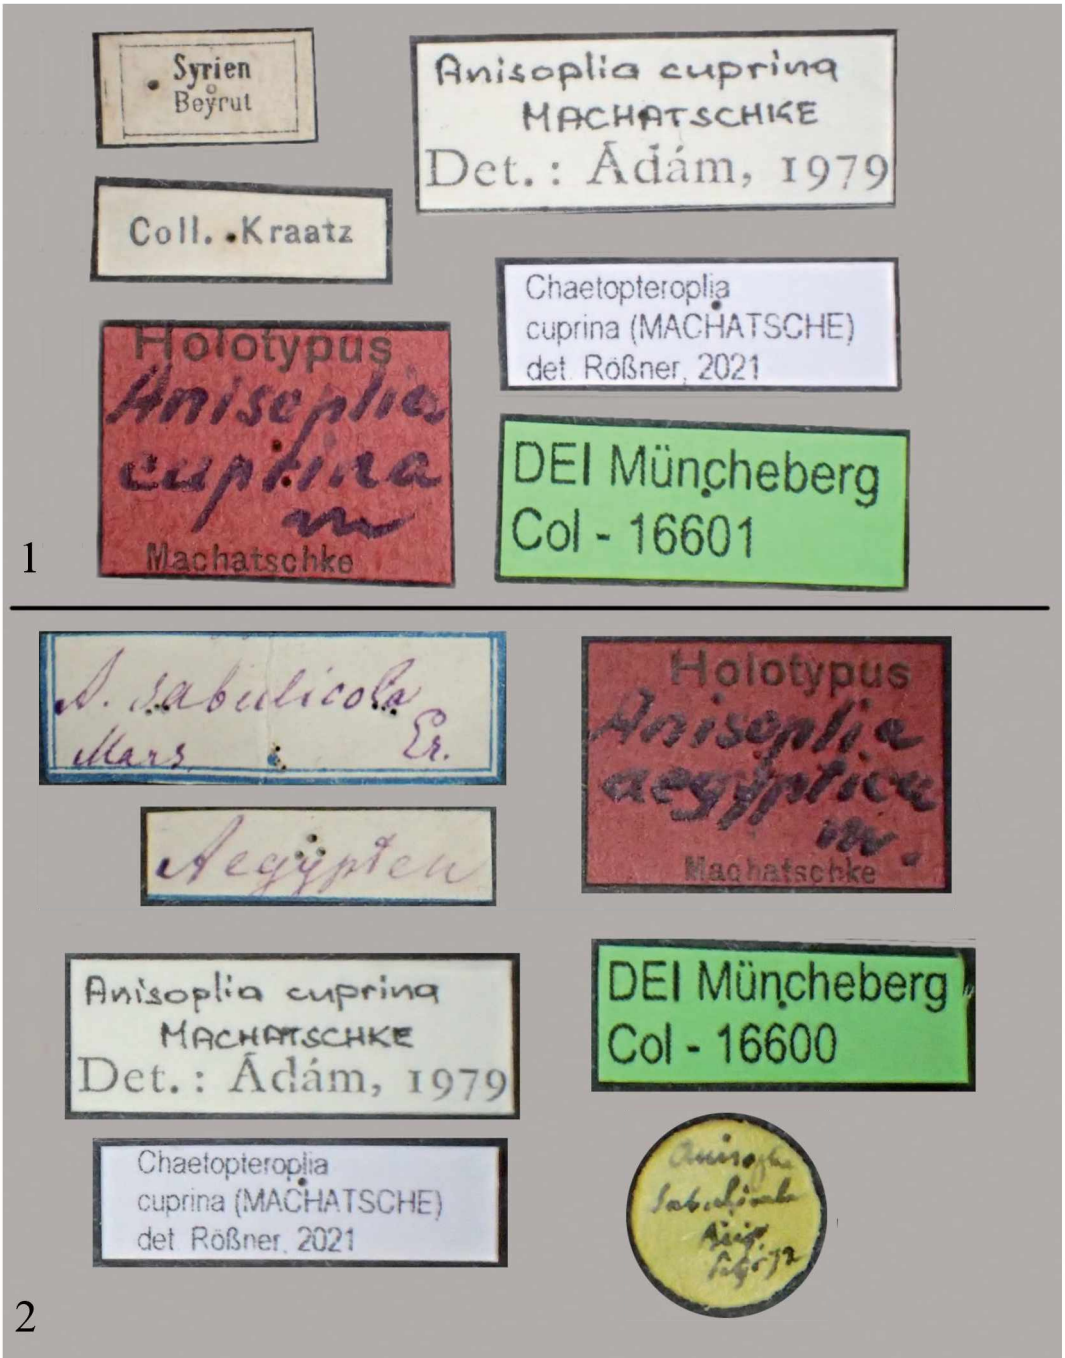 Syrien
Beyrut
Coll. Kraatz
Holotypus
Anisoplia
cuprina
m
Machatschke
Anisoplia cuprina
MACHATSCHKE
Det.: Ádám, 1979
Chaetopteroplia
cuprina (MACHATSCHE)
det. Rößner, 2021
DEI Müncheberg
Col - 16601
1
A. sabulicola
Mars. Er.
Aegÿpten
Anisoplia cuprina
MACHATSCHKE
Det.: Ádám, 1979
Chaetopteroplia
cuprina (MACHATSCHE)
det. Rößner, 2021
Holotypus
Anisoplia
aegÿptica
m.
Machatschke
DEI Müncheberg
Col - 16600
sabulicola
2